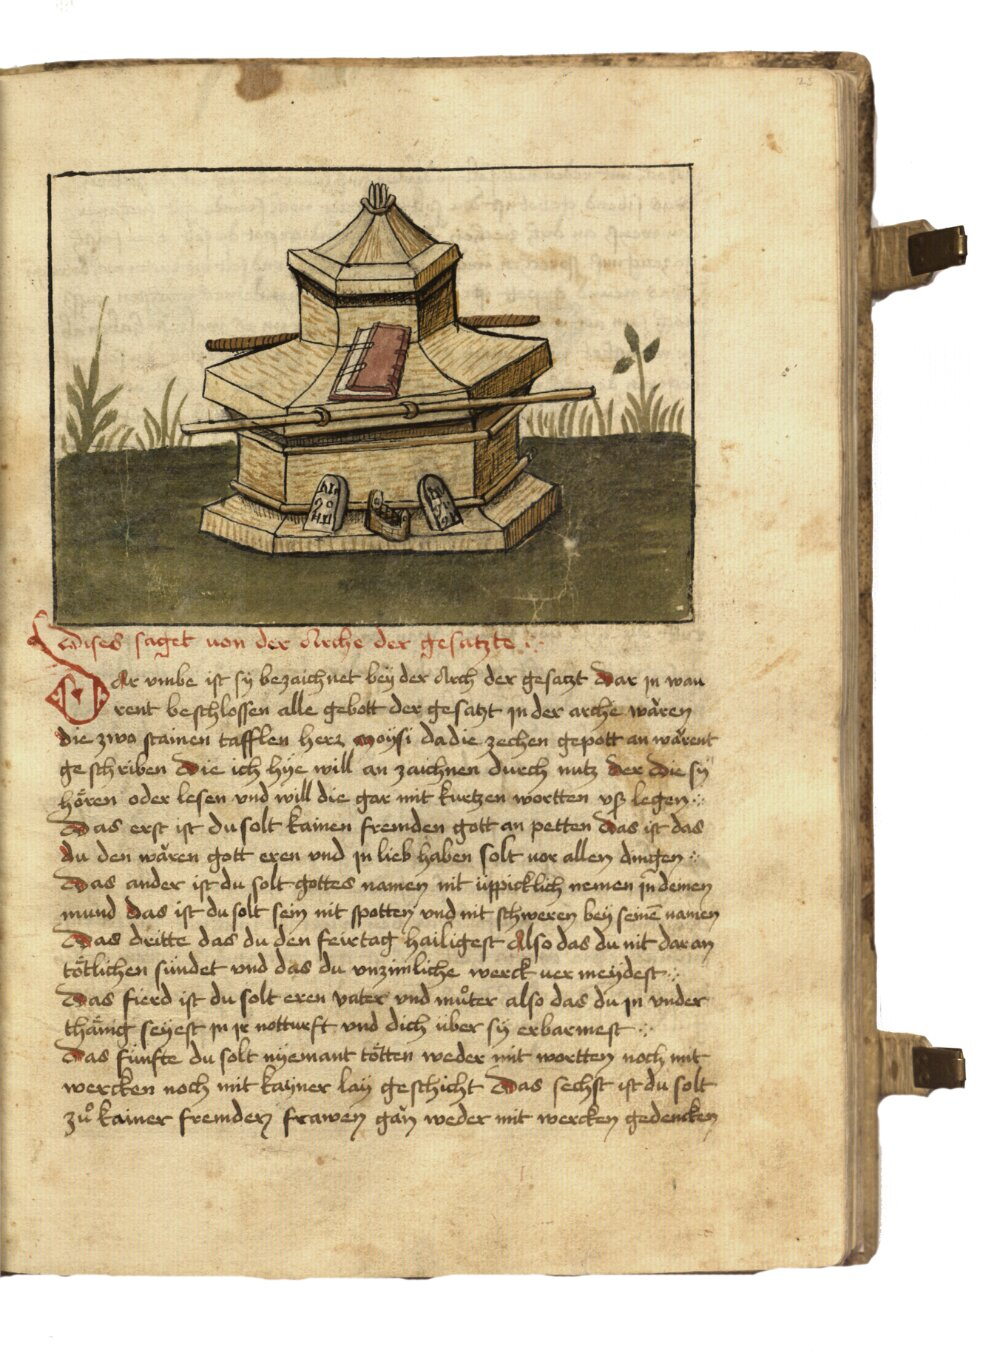 Dises saget von der Arche der gesatzte
Dar vmbe ist sÿ bezaichnet beÿ der Arch der gesatzt Dar jn wau
rent beschlossen alle gebott der gesatzt jn der arche wären
die zwo stainen tafflen herr moÿsi da die zechen gepott an wärent
geschriben Die ich hÿe will an zaichnen durch nutz der Die sÿ
hören oder lesen vnd will die gar mit kurtzen wortten vß legen
Das erst ist du solt kainen fremden gott an petten Das ist das
du den wären gott eren vnd jn lieb haben solt vor allen dingen
Das ander ist du solt gottes namen nit üppicklich nemen jn deinen
mund Das ist du solt sein nit spotten vnd nit schweren beÿ seinē namen
Das dritte das du den feirtag hailigest Also das du nit dar an
töttlichen sündet vnd das du vnzimliche werck uer meÿdest
Das fierd ist du solt eren vater vnd můter also das du jn vnder
thänig seÿest jn jr notturft vnd dich über sÿ erbarmest
Das fünfte du solt nÿemant tötten weder mit wortten noch mit
wercken noch mit kaÿner laÿ geschicht Das sechst ist du solt
zů kainer fremden frawen gän weder mit wercken gedencken